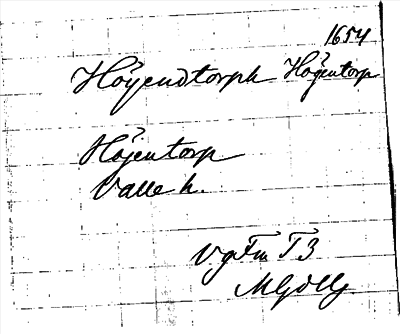 1654
Höyendtorph Högentorp
Höjentorp
Valle h.
VgFm T3